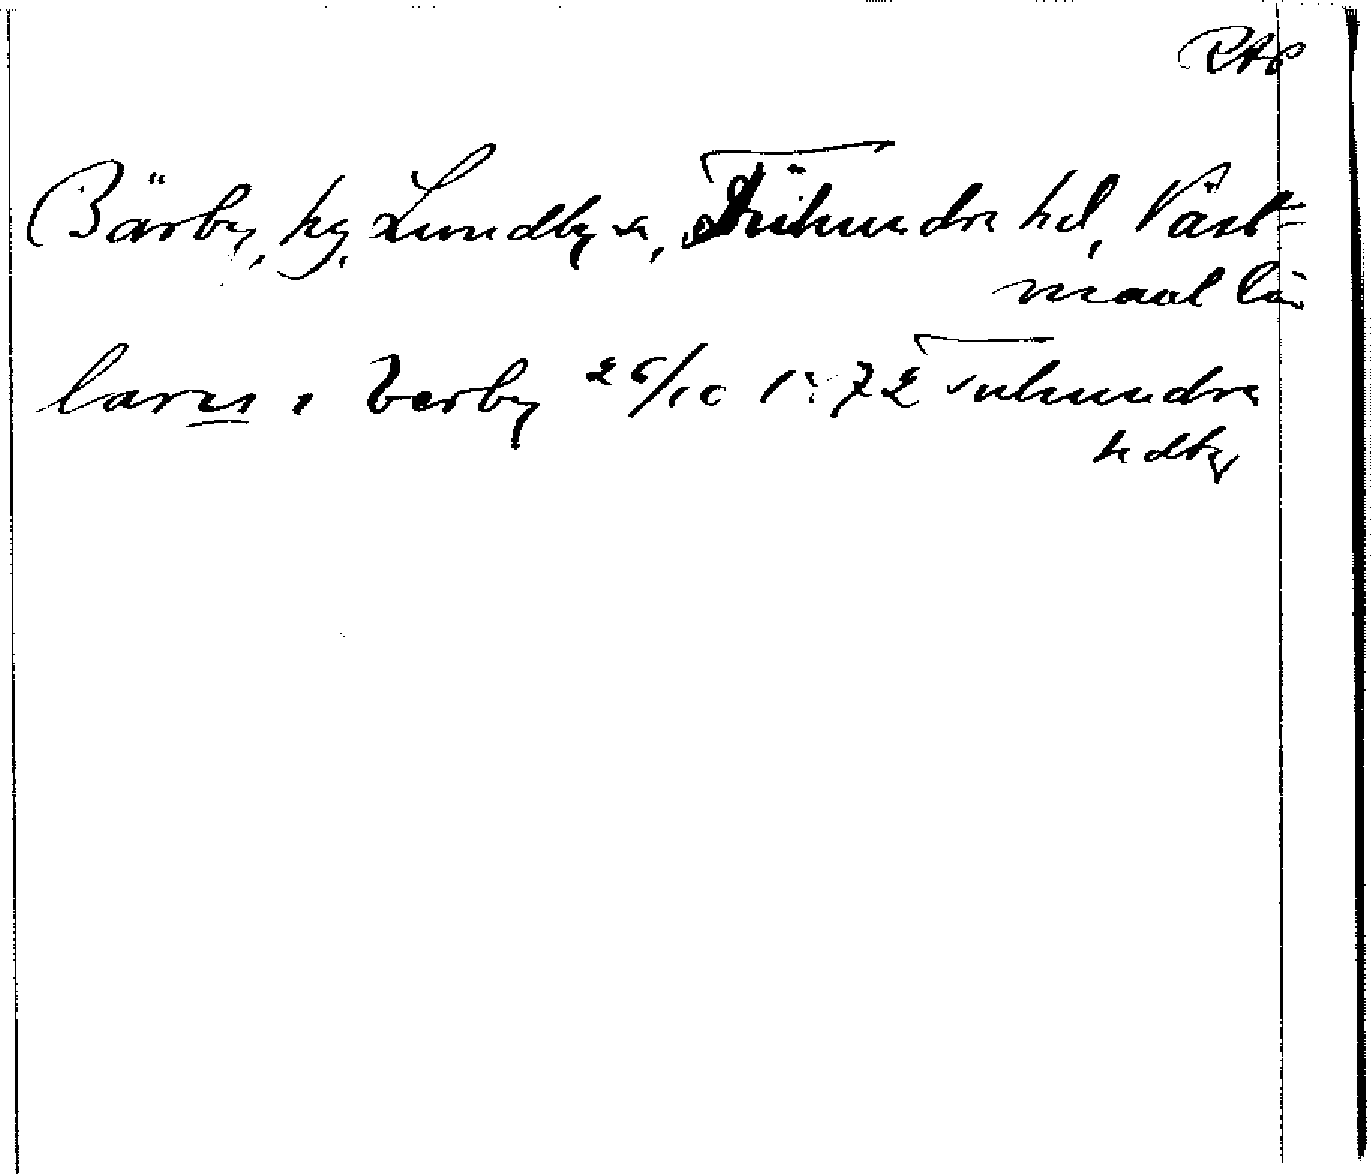 RAP
Bärby, by, Lundby sn, Tuhundra hd, Väst-
manl län
larus i berby 26/10 1472 Tuhundra
hdby